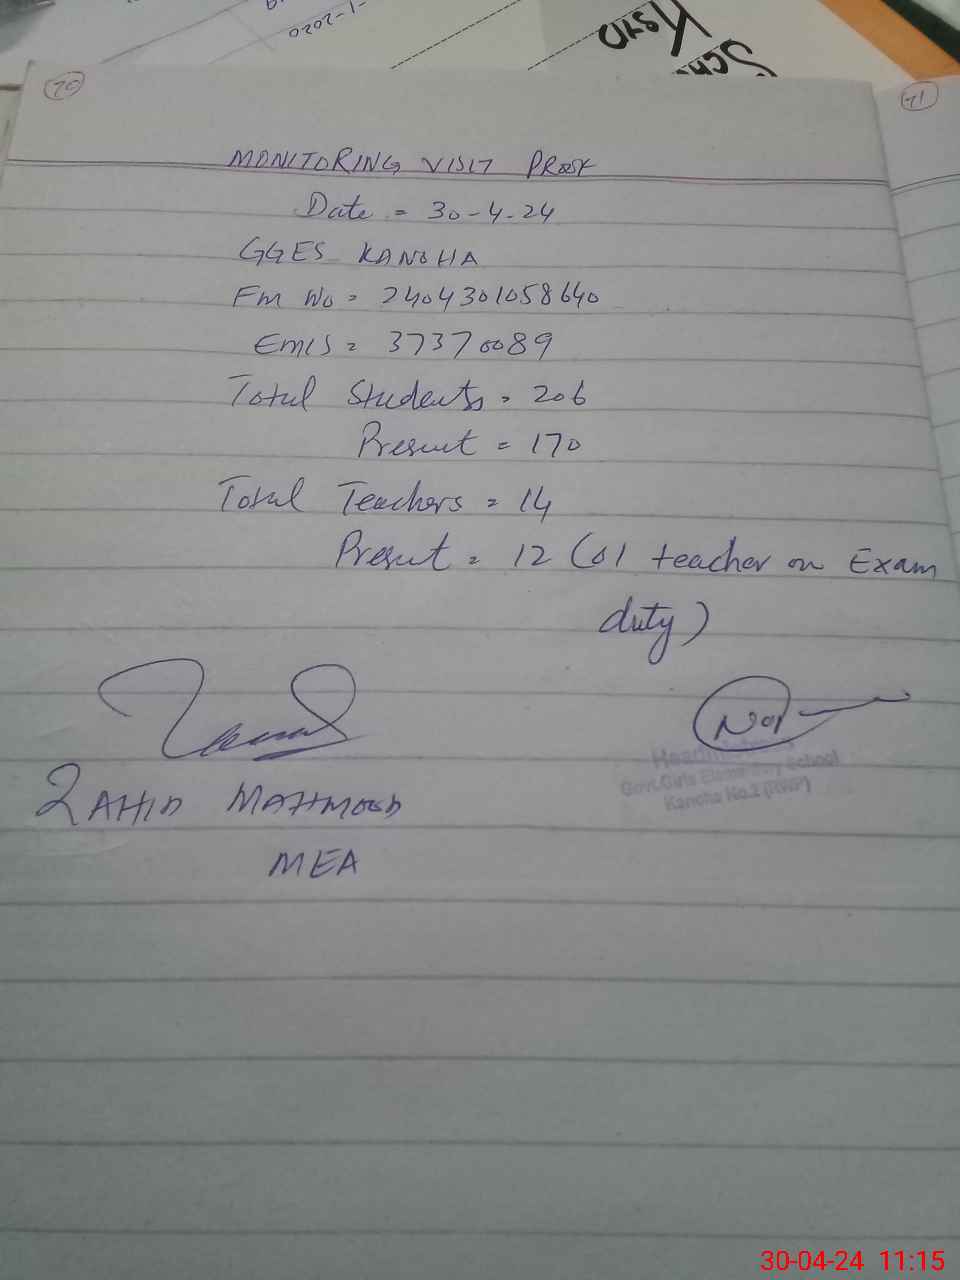 -1-2020
KSTD
70
71
MONITORING VISIT PROOF
Date = 30-4-24
GGES KANOHA
Fm No = 2404301058640
EMIS = 37370089
Total Students = 206
Present = 170
Total Teachers = 14
Present = 12 (01 teacher on Exam
duty)
Headmistress
Govt.Girls Elementary School
Kanoha No.2 (RWP)
ZAHID MAHMOOD
MEA
30-04-24 11:15